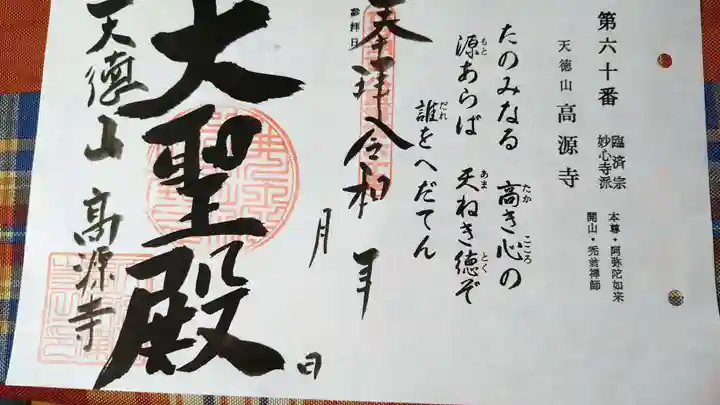 第六十番
臨済宗
妙心寺派
天徳山 高源寺
本尊・阿弥陀如来
開山・禿翁禅師
たのみなる 高き心の
たか こころ
源あらば 天ねき徳ぞ
もと あま とく
誰をへだてん
だれ
参拝日
奉拝 令和 年
月 日
大聖殿
天徳山 高源寺